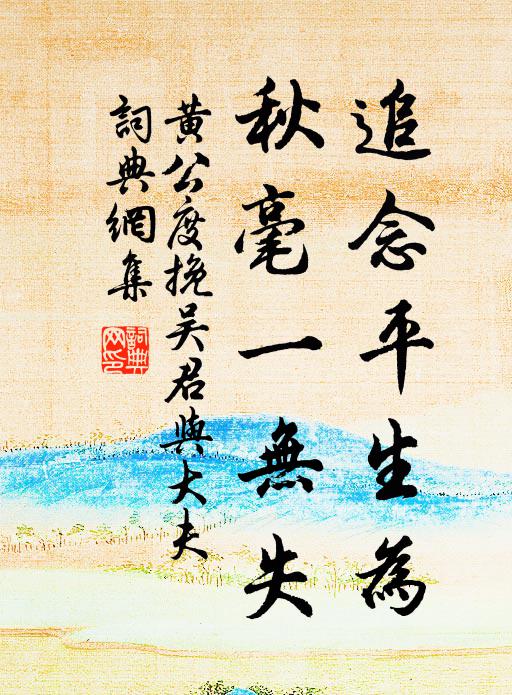 追念平生為
秋毫一無失
黃公度挽吳君與大夫
詞典網集
詞典網印